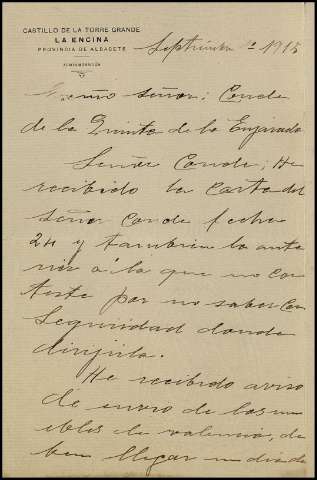 CASTILLO DE LA TORRE GRANDE
LA ENCINA
PROVINCIA DE ALBACETE
ALMANSA
Septiembre 2 1915
Exmo señor; Conde
de la Quinta de la Enjarada
Señor Conde; He
recibido la carta del
señor Conde fecha
24 y tambien la ante
rior á la que no con
teste por no saber con
Seguridad donde
dirijirla.
He recibido aviso
de envio de los mu
ebles de valencia, de
ben llegar un dia de